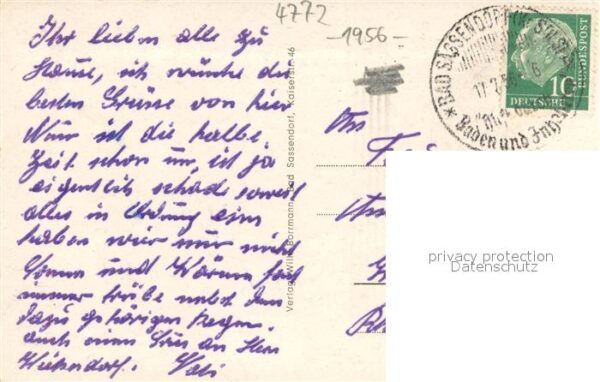 4772
-1956-
Ihr lieben alle zu
Hause, ich wünsche die
besten Grüsse von hier
Nun ist die halbe
Zeit schon um, ist ja
eigentlich schade soweit
alles in Ordnung eben
haben wir nur nicht
Sonne und Wärme fast
immer trübe nebst dem
dazu gehörigen Regen.
auch einen Gruss an Herr
Verlag Willi Borrmann, Bad Sassendorf, Kaiserstr. 46
BAD SASSENDORF (KR SOEST)
17.7.56
Baden und
10
DEUTSCHE BUNDESPOST
An
privacy protection
Datenschutz